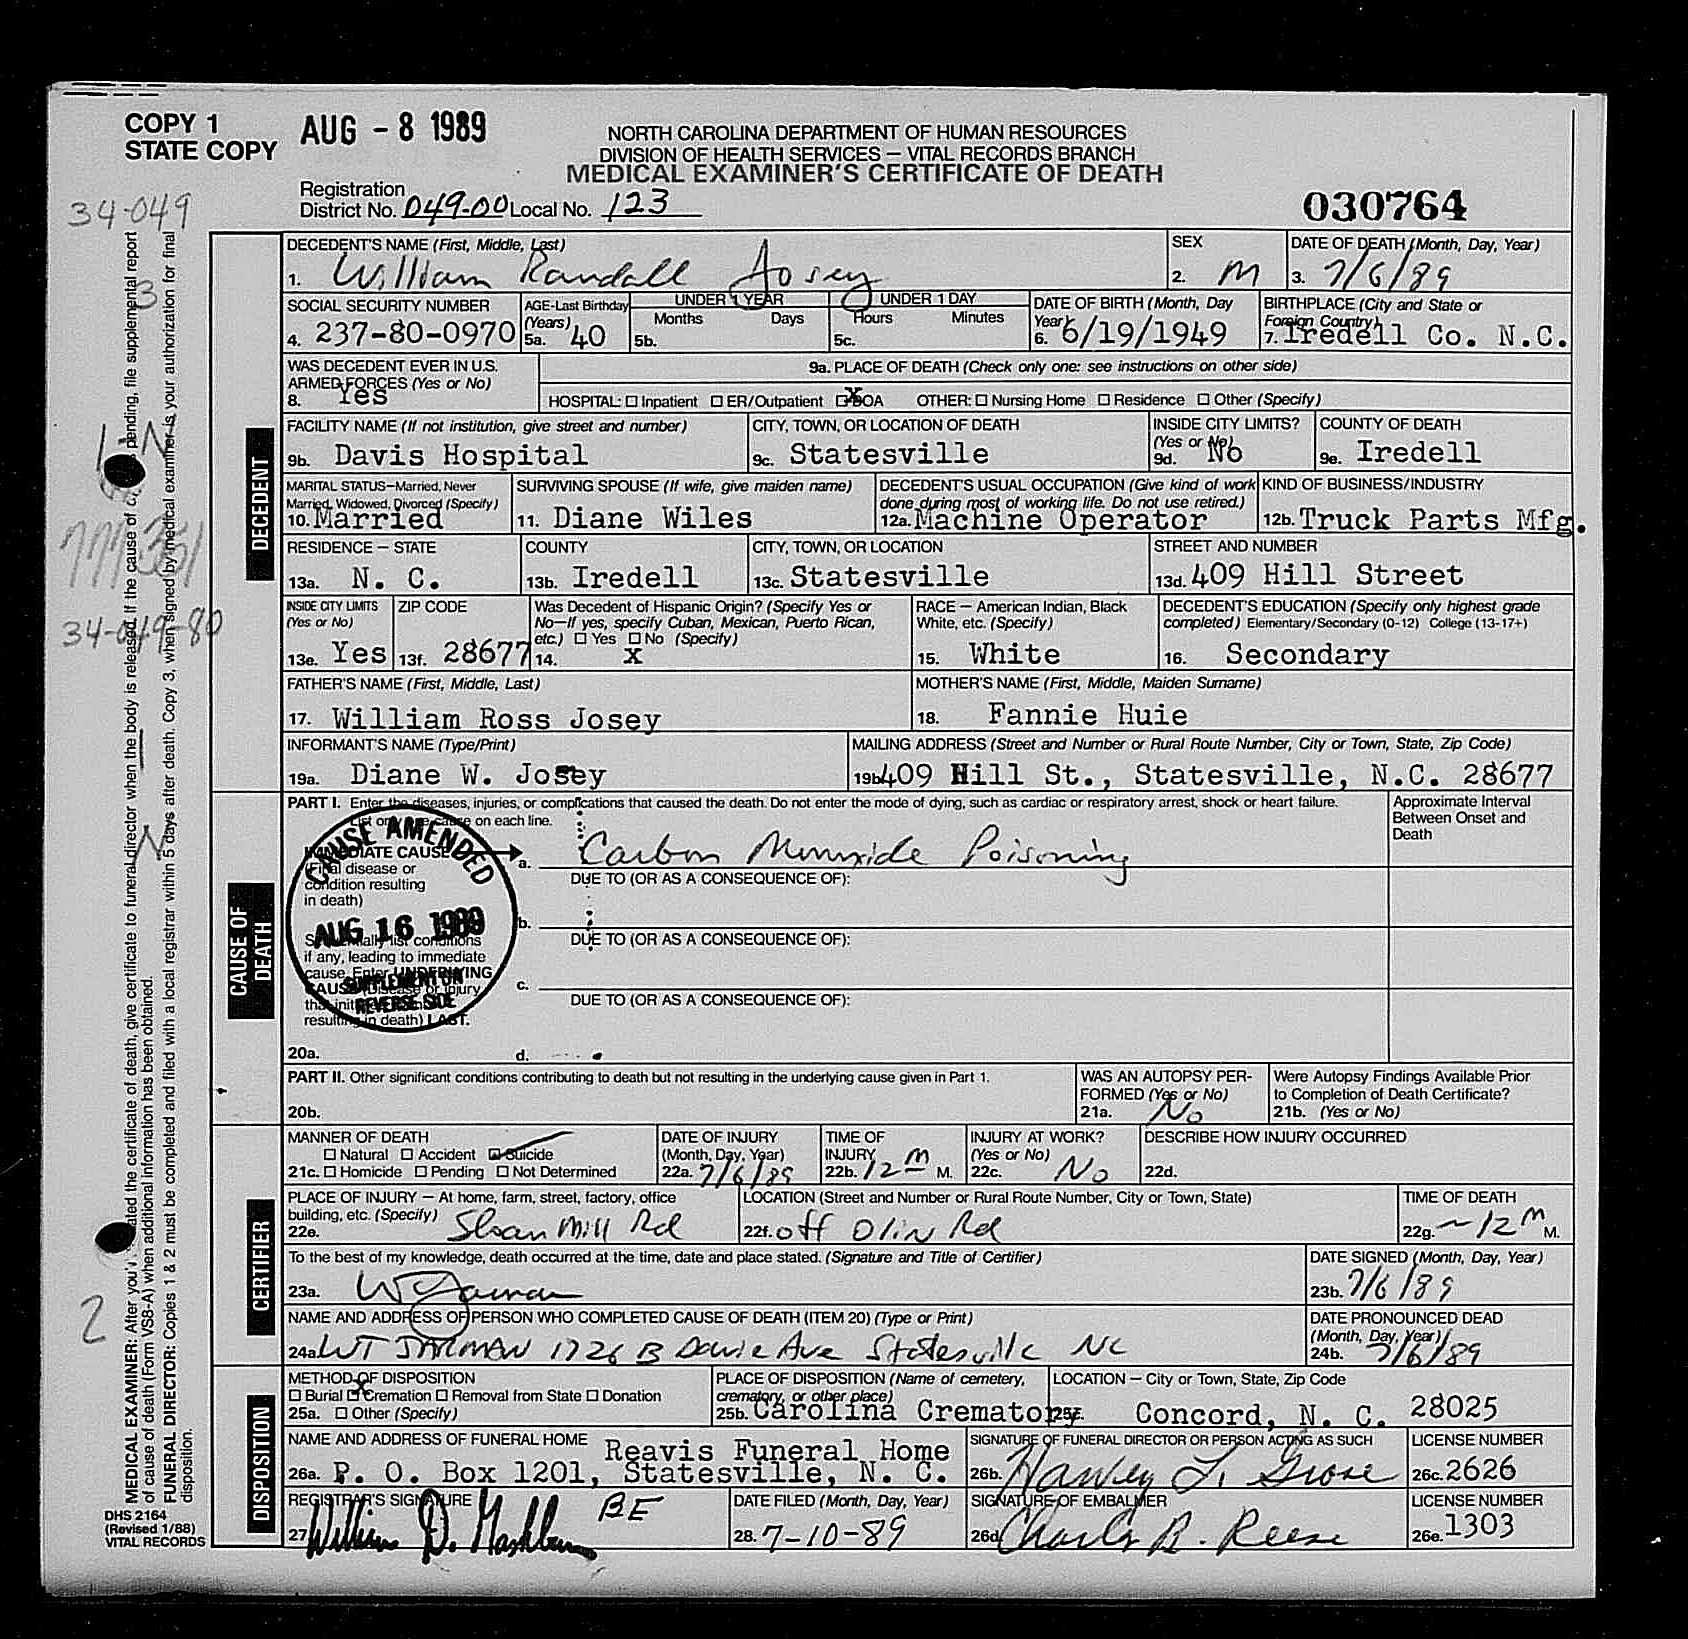 COPY 1
STATE COPY
AUG - 8 1989
NORTH CAROLINA DEPARTMENT OF HUMAN RESOURCES
DIVISION OF HEALTH SERVICES – VITAL RECORDS BRANCH
MEDICAL EXAMINER'S CERTIFICATE OF DEATH
Registration
District No. 049-00 Local No. 123
030764
34-049
3
34-049-80
2
DECEDENT
DECEDENT'S NAME (First, Middle, Last)
1. William Randall Josey
SEX
2. M
DATE OF DEATH (Month, Day, Year)
3. 7/6/89
SOCIAL SECURITY NUMBER
4. 237-80-0970
AGE-Last Birthday
(Years)
5a. 40
UNDER 1 YEAR
Months Days
5b.
UNDER 1 DAY
Hours Minutes
5c.
DATE OF BIRTH (Month, Day
Year)
6. 6/19/1949
BIRTHPLACE (City and State or
Foreign Country)
7. Iredell Co. N.C.
WAS DECEDENT EVER IN U.S.
ARMED FORCES (Yes or No)
8. Yes
9a. PLACE OF DEATH (Check only one: see instructions on other side)
HOSPITAL: ☐ Inpatient ☐ ER/Outpatient ☒ DOA OTHER: ☐ Nursing Home ☐ Residence ☐ Other (Specify)
FACILITY NAME (If not institution, give street and number)
9b. Davis Hospital
CITY, TOWN, OR LOCATION OF DEATH
9c. Statesville
INSIDE CITY LIMITS?
(Yes or No)
9d. No
COUNTY OF DEATH
9e. Iredell
MARITAL STATUS–Married, Never
Married, Widowed, Divorced (Specify)
10. Married
SURVIVING SPOUSE (If wife, give maiden name)
11. Diane Wiles
DECEDENT'S USUAL OCCUPATION (Give kind of work
done during most of working life. Do not use retired.)
12a. Machine Operator
KIND OF BUSINESS/INDUSTRY
12b. Truck Parts Mfg.
RESIDENCE – STATE
13a. N. C.
COUNTY
13b. Iredell
CITY, TOWN, OR LOCATION
13c. Statesville
STREET AND NUMBER
13d. 409 Hill Street
INSIDE CITY LIMITS
(Yes or No)
13e. Yes
ZIP CODE
13f. 28677
Was Decedent of Hispanic Origin? (Specify Yes or
No–If yes, specify Cuban, Mexican, Puerto Rican,
etc.) ☐ Yes ☐ No (Specify)
14. X
RACE – American Indian, Black
White, etc. (Specify)
15. White
DECEDENT'S EDUCATION (Specify only highest grade
completed) Elementary/Secondary (0-12) College (13-17+)
16. Secondary
FATHER'S NAME (First, Middle, Last)
17. William Ross Josey
MOTHER'S NAME (First, Middle, Maiden Surname)
18. Fannie Huie
INFORMANT'S NAME (Type/Print)
19a. Diane W. Josey
MAILING ADDRESS (Street and Number or Rural Route Number, City or Town, State, Zip Code)
19b. 409 Hill St., Statesville, N.C. 28677
CAUSE OF
DEATH
PART I. Enter the diseases, injuries, or complications that caused the death. Do not enter the mode of dying, such as cardiac or respiratory arrest, shock or heart failure.
List only one cause on each line.
Approximate Interval
Between Onset and
Death
IMMEDIATE CAUSE
(Final disease or
condition resulting
in death)
a. Carbon Monoxide Poisoning
DUE TO (OR AS A CONSEQUENCE OF):
b.
DUE TO (OR AS A CONSEQUENCE OF):
c.
DUE TO (OR AS A CONSEQUENCE OF):
d.
Sequentially list conditions
if any, leading to immediate
cause. Enter UNDERLYING
CAUSE (Disease or injury
that initiated
resulting in death) LAST.
20a.
CAUSE AMENDED
AUG 16 1989
SUPPLEMENT ON
REVERSE SIDE
PART II. Other significant conditions contributing to death but not resulting in the underlying cause given in Part 1.
20b.
WAS AN AUTOPSY PER-
FORMED (Yes or No)
21a. No
Were Autopsy Findings Available Prior
to Completion of Death Certificate?
21b. (Yes or No)
CERTIFIER
MANNER OF DEATH
☐ Natural ☐ Accident ☑ Suicide
21c. ☐ Homicide ☐ Pending ☐ Not Determined
DATE OF INJURY
(Month, Day, Year)
22a. 7/6/89
TIME OF
INJURY
22b. 12 M M.
INJURY AT WORK?
(Yes or No)
22c. No
DESCRIBE HOW INJURY OCCURRED
22d.
PLACE OF INJURY – At home, farm, street, factory, office
building, etc. (Specify)
22e. Sloan Mill Rd
LOCATION (Street and Number or Rural Route Number, City or Town, State)
22f. off Olin Rd
TIME OF DEATH
22g. ~12 M M.
To the best of my knowledge, death occurred at the time, date and place stated. (Signature and Title of Certifier)
23a.
DATE SIGNED (Month, Day, Year)
23b. 7/6/89
NAME AND ADDRESS OF PERSON WHO COMPLETED CAUSE OF DEATH (ITEM 20) (Type or Print)
24a. WT JARMAN 1726 B Davie Ave Statesville NC
DATE PRONOUNCED DEAD
(Month, Day, Year)
24b. 7/6/89
DISPOSITION
METHOD OF DISPOSITION
☐ Burial ☒ Cremation ☐ Removal from State ☐ Donation
25a. ☐ Other (Specify)
PLACE OF DISPOSITION (Name of cemetery,
crematory, or other place)
25b. Carolina Crematory
LOCATION – City or Town, State, Zip Code
Concord, N. C. 28025
NAME AND ADDRESS OF FUNERAL HOME Reavis Funeral Home
26a. P. O. Box 1201, Statesville, N. C.
SIGNATURE OF FUNERAL DIRECTOR OR PERSON ACTING AS SUCH
26b. Harvey L. Grose
LICENSE NUMBER
26c. 2626
REGISTRAR'S SIGNATURE BE
27. William D. Mashburn
DATE FILED (Month, Day, Year)
28. 7-10-89
SIGNATURE OF EMBALMER
26d. Charles B. Reese
LICENSE NUMBER
26e. 1303
MEDICAL EXAMINER: After you've the certificate of death, give certificate to funeral director when the body is released. If the cause of pending, file supplemental report
of cause of death (Form VS8-A) when additional information has been obtained.
FUNERAL DIRECTOR: Copies 1 & 2 must be completed and filed with a local registrar within 5 days after death. Copy 3, when signed by medical examiner is your authorization for final
disposition.
DHS 2164
(Revised 1/88)
VITAL RECORDS